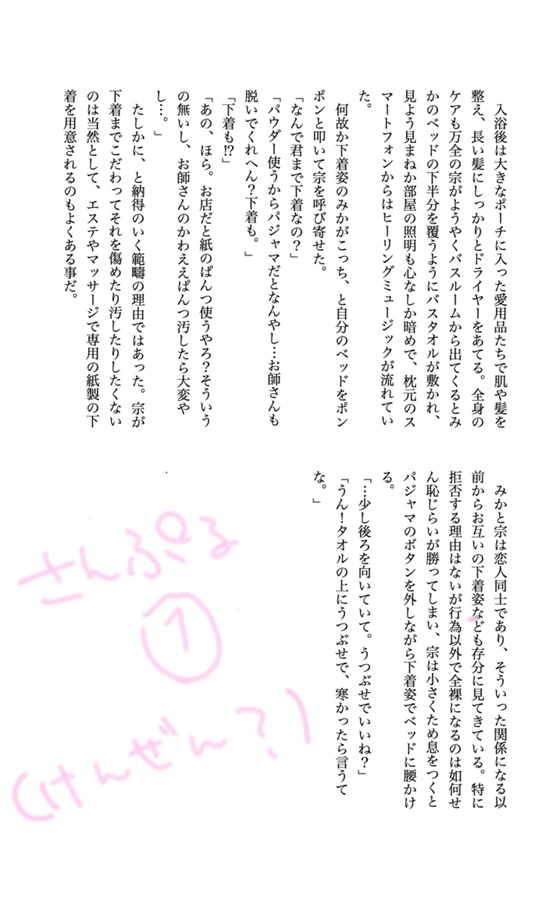 入浴後は大きなポーチに入った愛用品たちで肌や髪を
整え、長い髪にしっかりとドライヤーをあてる。全身の
ケアも万全の宗がようやくバスルームから出てくるとみ
かのベッドの下半分を覆うようにバスタオルが敷かれ、
見よう見まねか部屋の照明も心なしか暗めで、枕元のス
マートフォンからはヒーリングミュージックが流れてい
た。
何故か下着姿のみかがこっち、と自分のベッドをポン
ポンと叩いて宗を呼び寄せた。
「なんで君まで下着なの？」
「パウダー使うからパジャマだとなんやし…お師さんも
脱いでくれへん？下着も。」
「下着も!?」
「あの、ほら。お店だと紙のぱんつ使うやろ？そういう
の無いし、お師さんのかわええぱんつ汚したら大変や
し…。」
たしかに、と納得のいく範疇の理由ではあった。宗が
下着までこだわってそれを傷めたり汚したりしたくない
のは当然として、エステやマッサージで専用の紙製の下
着を用意されるのもよくある事だ。
みかと宗は恋人同士であり、そういった関係になる以
前からお互いの下着姿なども存分に見てきている。特に
拒否する理由はないが行為以外で全裸になるのは如何せ
ん恥じらいが勝ってしまい、宗は小さくため息をつくと
パジャマのボタンを外しながら下着姿でベッドに腰かけ
る。
「…少し後ろを向いていて。うつぶせでいいね？」
「うん！タオルの上にうつぶせで、寒かったら言うて
な。」
さんぷる
①
(けんぜん？)